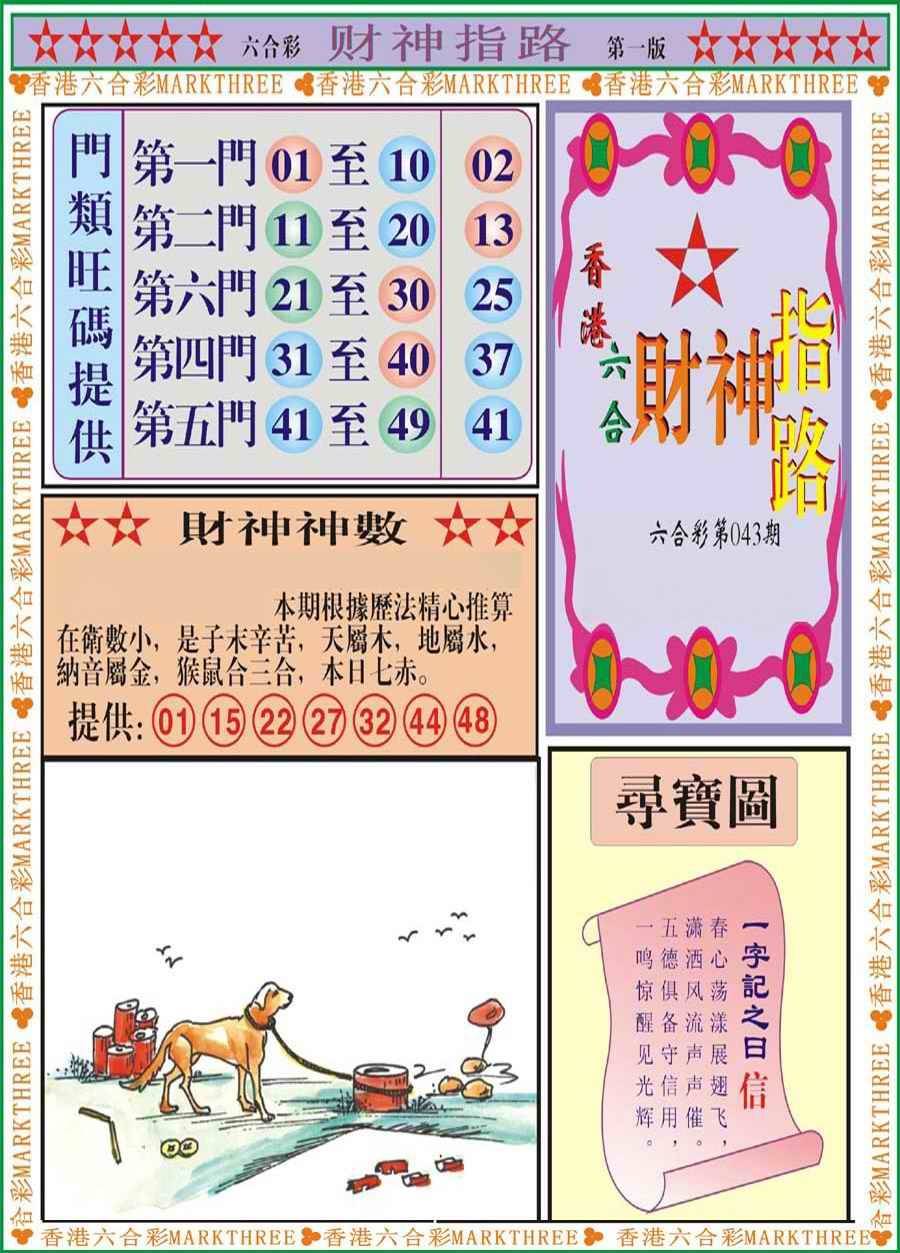 六合彩 财神指路 第一版
香港六合彩MARKTHREE 香港六合彩MARKTHREE 香港六合彩MARKTHREE
香港六合彩MARKTHREE 香港六合彩MARKTHREE 香港六合彩MARKTHREE 香港六合彩MARKTHREE
門類旺碼提供
第一門 01 至 10 02
第二門 11 至 20 13
第六門 21 至 30 25
第四門 31 至 40 37
第五門 41 至 49 41
香港六合
財神指路
六合彩第043期
財神神數
本期根據歷法精心推算
在衛數小，是子末辛苦，天屬木，地屬水，
納音屬金，猴鼠合三合，本日七赤。
提供: 01 15 22 27 32 44 48
尋寶圖
一字記之曰 信
春心荡漾展翅飞，
潇洒风流声声催。
五德俱备守信用，
一鸣惊醒见光辉。
香港六合彩MARKTHREE 香港六合彩MARKTHREE 香港六合彩MARKTHREE 香港六合彩MARKTHREE
香港六合彩MARKTHREE 香港六合彩MARKTHREE 香港六合彩MARKTHREE